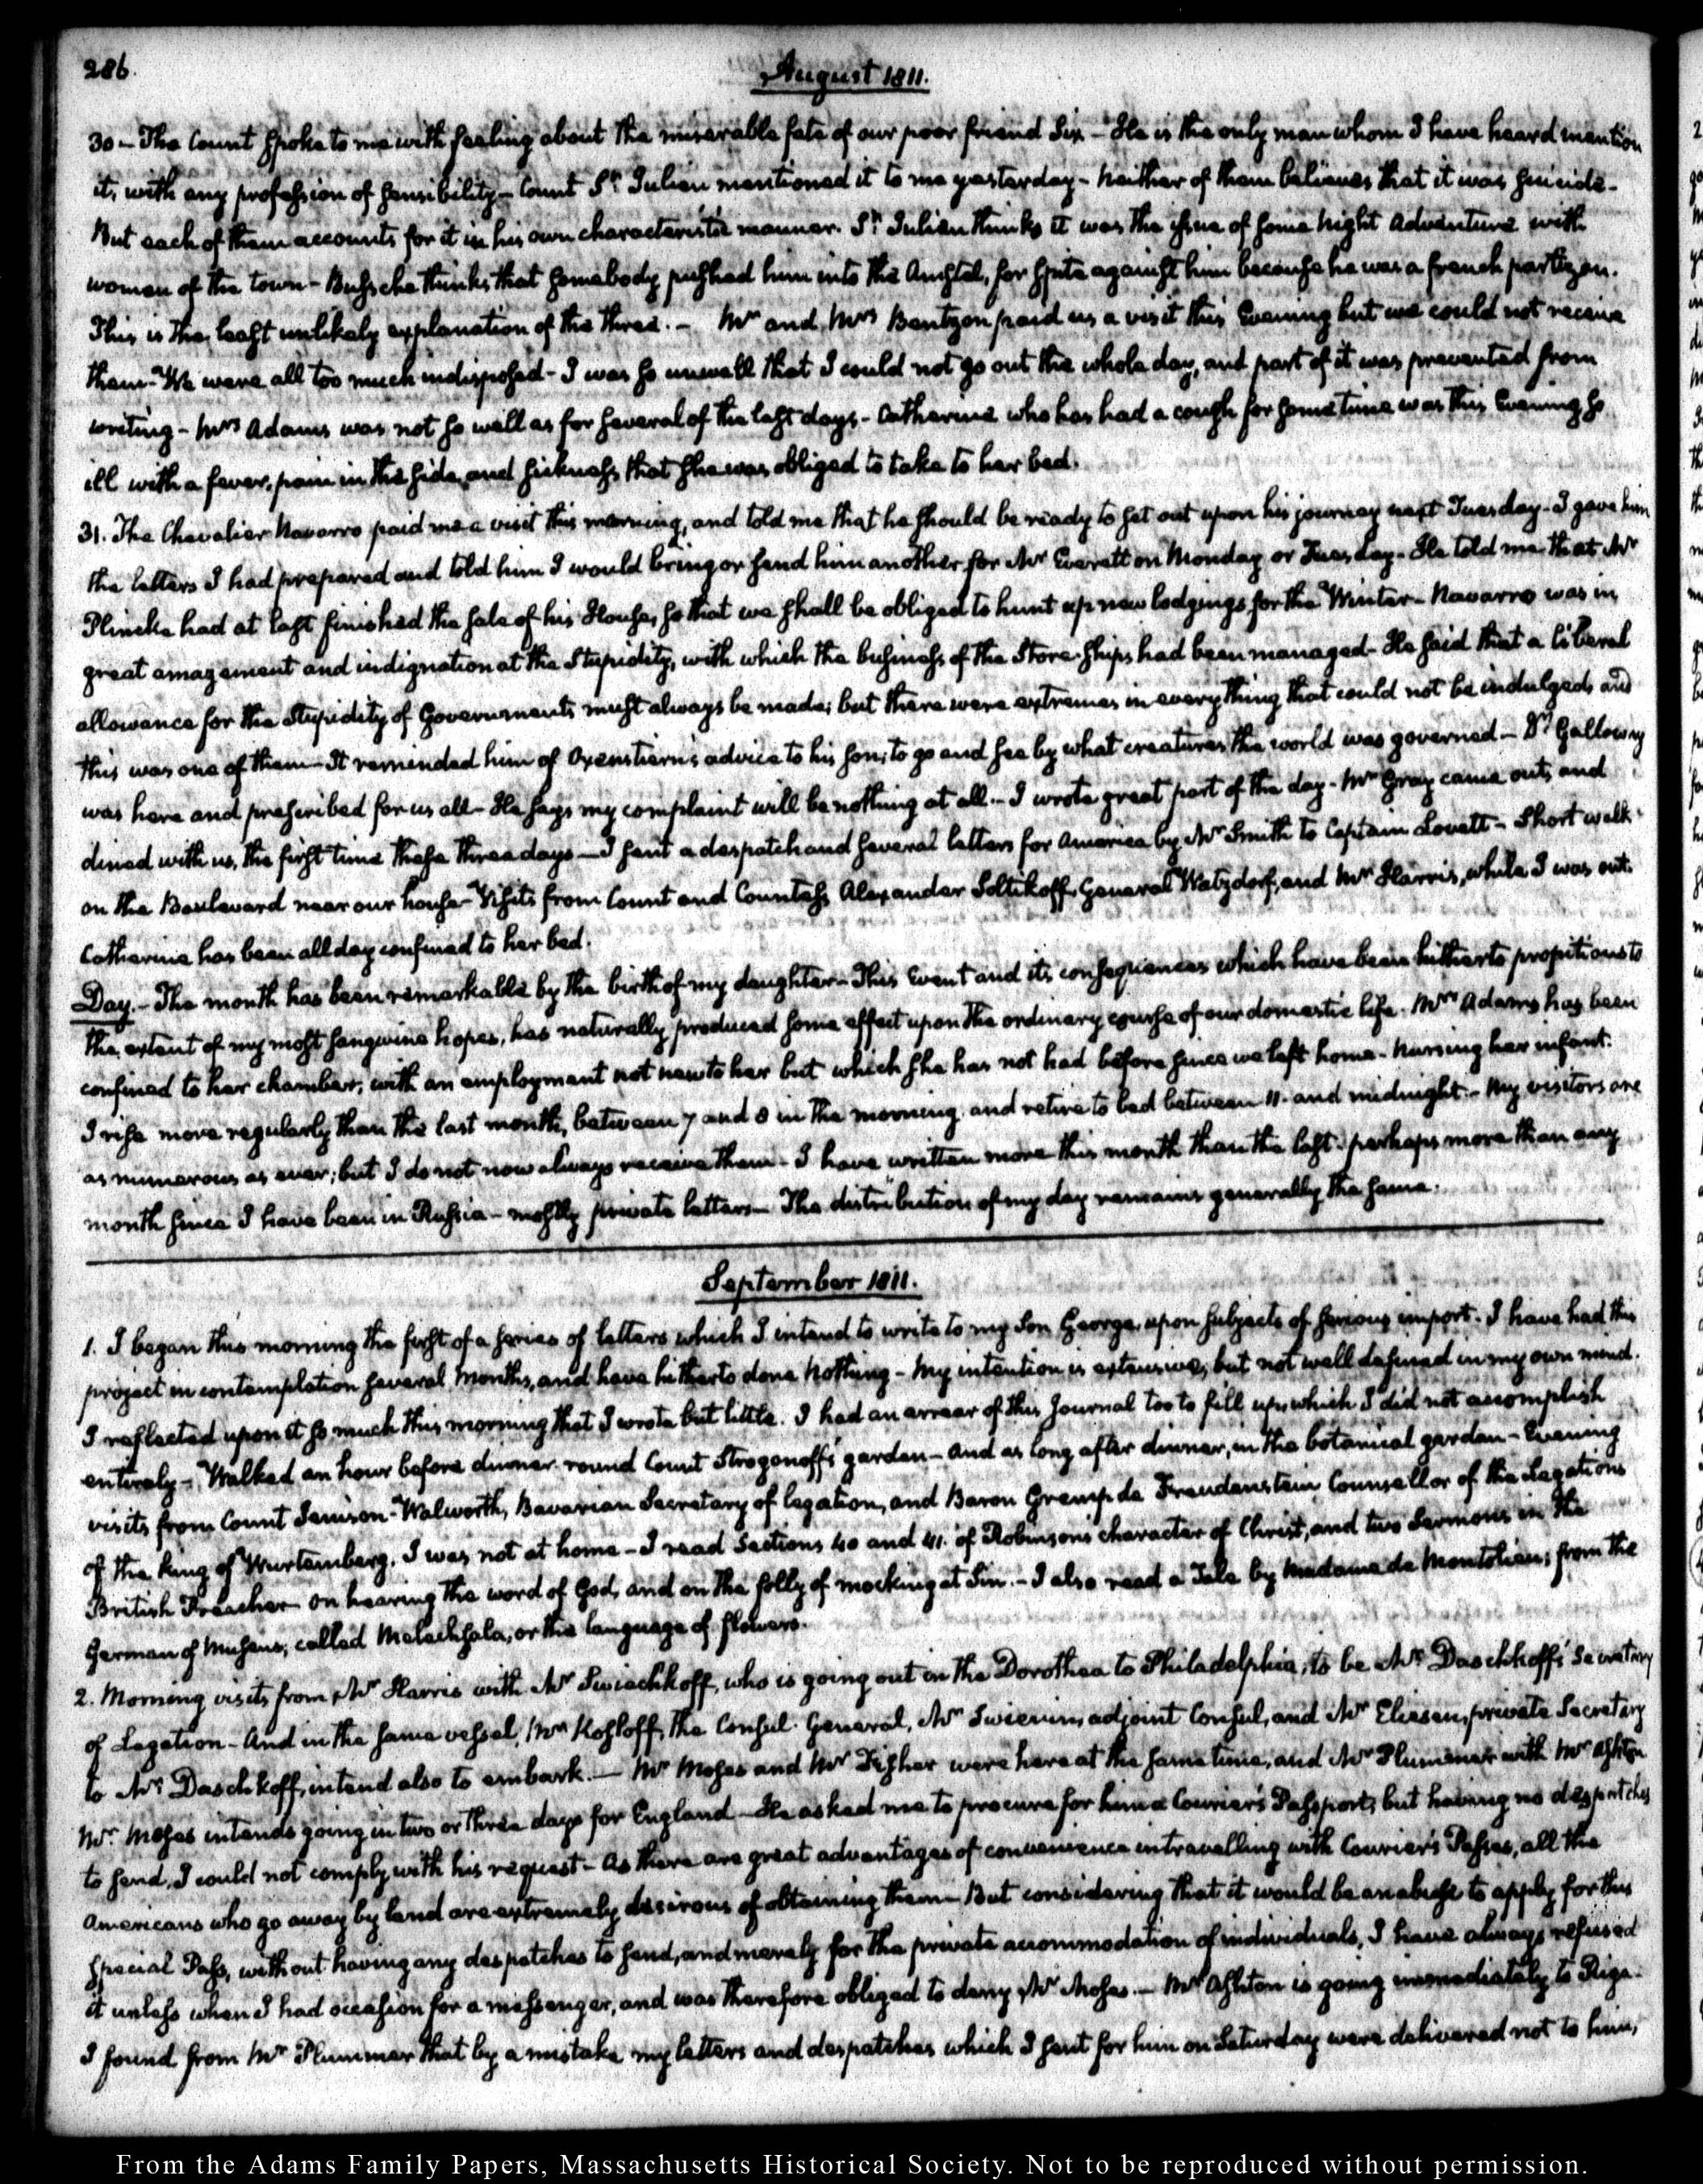 286.
August 1811.
30 – The Count spoke to me with feeling about the miserable fate of our poor friend Six – He is the only man whom I have heard mention
it, with any profession of sensibility – Count St. Julien mentioned it to me yesterday – Neither of them believes that it was suicide –
But each of them accounts for it in his own characteristic manner. St. Julien thinks it was the issue of some night adventure with
women of the town – Bussche thinks that somebody pushed him into the Amstel, for spite against him because he was a french partizan.
This is the least unlikely explanation of the three. – Mr. and Mrs Bentzon paid us a visit this Evening but we could not receive
them – We were all too much indisposed – I was so unwell that I could not go out the whole day, and part of it was prevented from
writing – Mrs Adams was not so well as for several of the last days – Catherine who has had a cough for sometime was this Evening so
ill with a fever, pain in the side, and sickness that she was obliged to take to her bed.
31. The Chevalier Navarro paid me a visit this morning, and told me that he should be ready to set out upon his journey next Tuesday – I gave him
the letters I had prepared and told him I would bring or send him another for Mr Everett on Monday or Tuesday – He told me that Mr
Plincke had at last finished the sale of his House, so that we shall be obliged to hunt up new lodgings for the Winter – Navarro was in
great amazement and indignation at the Stupidity, with which the business of the Store-ships had been managed – He said that a liberal
allowance for the Stupidity of Governments must always be made; but there were extremes in every thing that could not be indulged, and
this was one of them – It reminded him of Oxenstiern's advice to his son; to go and see by what creatures the world was governed – Dr. Galloway
was here and prescribed for us all – He says my complaint will be nothing at all. – I wrote great part of the day – Mr Gray came out, and
dined with us, the first time these three days – I sent a despatch and several letters for America by Mr Smith to Captain Lovett – Short walk
on the Boulevard near our house – Visits from Count and Countess Alexander Soltikoff, General Watzdorf, and Mr Harris, while I was out.
Catherine has been all day confined to her bed.
Day. – The month has been remarkable by the birth of my daughter – This Event and its consequences which have been hitherto propitious to
the extent of my most sanguine hopes, has naturally produced some effect upon the ordinary course of our domestic life. Mrs Adams has been
confined to her chamber, with an employment not new to her but which she has not had before since we left home – Nursing her infant.
I rise more regularly than the last month, between 7 and 8 in the morning, and retire to bed between 11. and midnight. – My visitors are
as numerous as ever; but I do not now always receive them – I have written more this month than the last: perhaps more than any
month since I have been in Russia – mostly private letters – The distribution of my day remains generally the same.
September 1811.
1. I began this morning the first of a series of letters which I intend to write to my Son George, upon subjects of serious import. I have had this
project in contemplation several Months, and have hitherto done Nothing – My intention is extensive, but not well defined in my own mind.
I reflected upon it so much this morning that I wrote but little. I had an arrear of this Journal too to fill up, which I did not accomplish
entirely – Walked an hour before dinner round Count Strogonoff's garden – And as long after dinner, in the botanical garden – Evening
visits from Count Jenison-Walworth, Bavarian Secretary of legation, and Baron Gremp de Freudenstein Counsellor of the Legations
of the King of Wurtemberg. I was not at home – I read Sections 40 and 41. of Robinson's character of Christ, and two Sermons in the
British Preacher on hearing the word of God, and on the folly of mocking at Sin. – I also read a Tale by Madame de Montolieu; from the
German of Musaus, called Melechsala, or the language of flowers.
2. Morning visits from Mr Harris with Mr Swiachkoff, who is going out in the Dorothea to Philadelphia, to be Mr. Daschkoff's Secretary
of Legation – And in the same vessel, Mr Kosloff, the Consul-General, Mr Swierin, adjoint Consul, and Mr Eliesen, private Secretary
to Mr. Daschkoff, intend also to embark. – Mr Moses and Mr Fisher were here at the same time, and Mr Plummer with Mr Ashton
Mr. Moses intends going in two or three days for England – He asked me to procure for him a Courier's Passport, but having no despatches
to send, I could not comply with his request – As there are great advantages of convenience in travelling with Courier's Passes, all the
Americans who go away by land are extremely desirous of obtaining them – But considering that it would be an abuse to apply for this
special Pass, without having any despatches to send, and merely for the private accommodation of individuals, I have always refused
it unless when I had occasion for a messenger, and was therefore obliged to deny Mr Moses. – Mr Ashton is going immediately to Riga.
I found from Mr Plummer that by a mistake my letters and despatches which I sent for him on Saturday were delivered not to him,
From the Adams Family Papers, Massachusetts Historical Society. Not to be reproduced without permission.